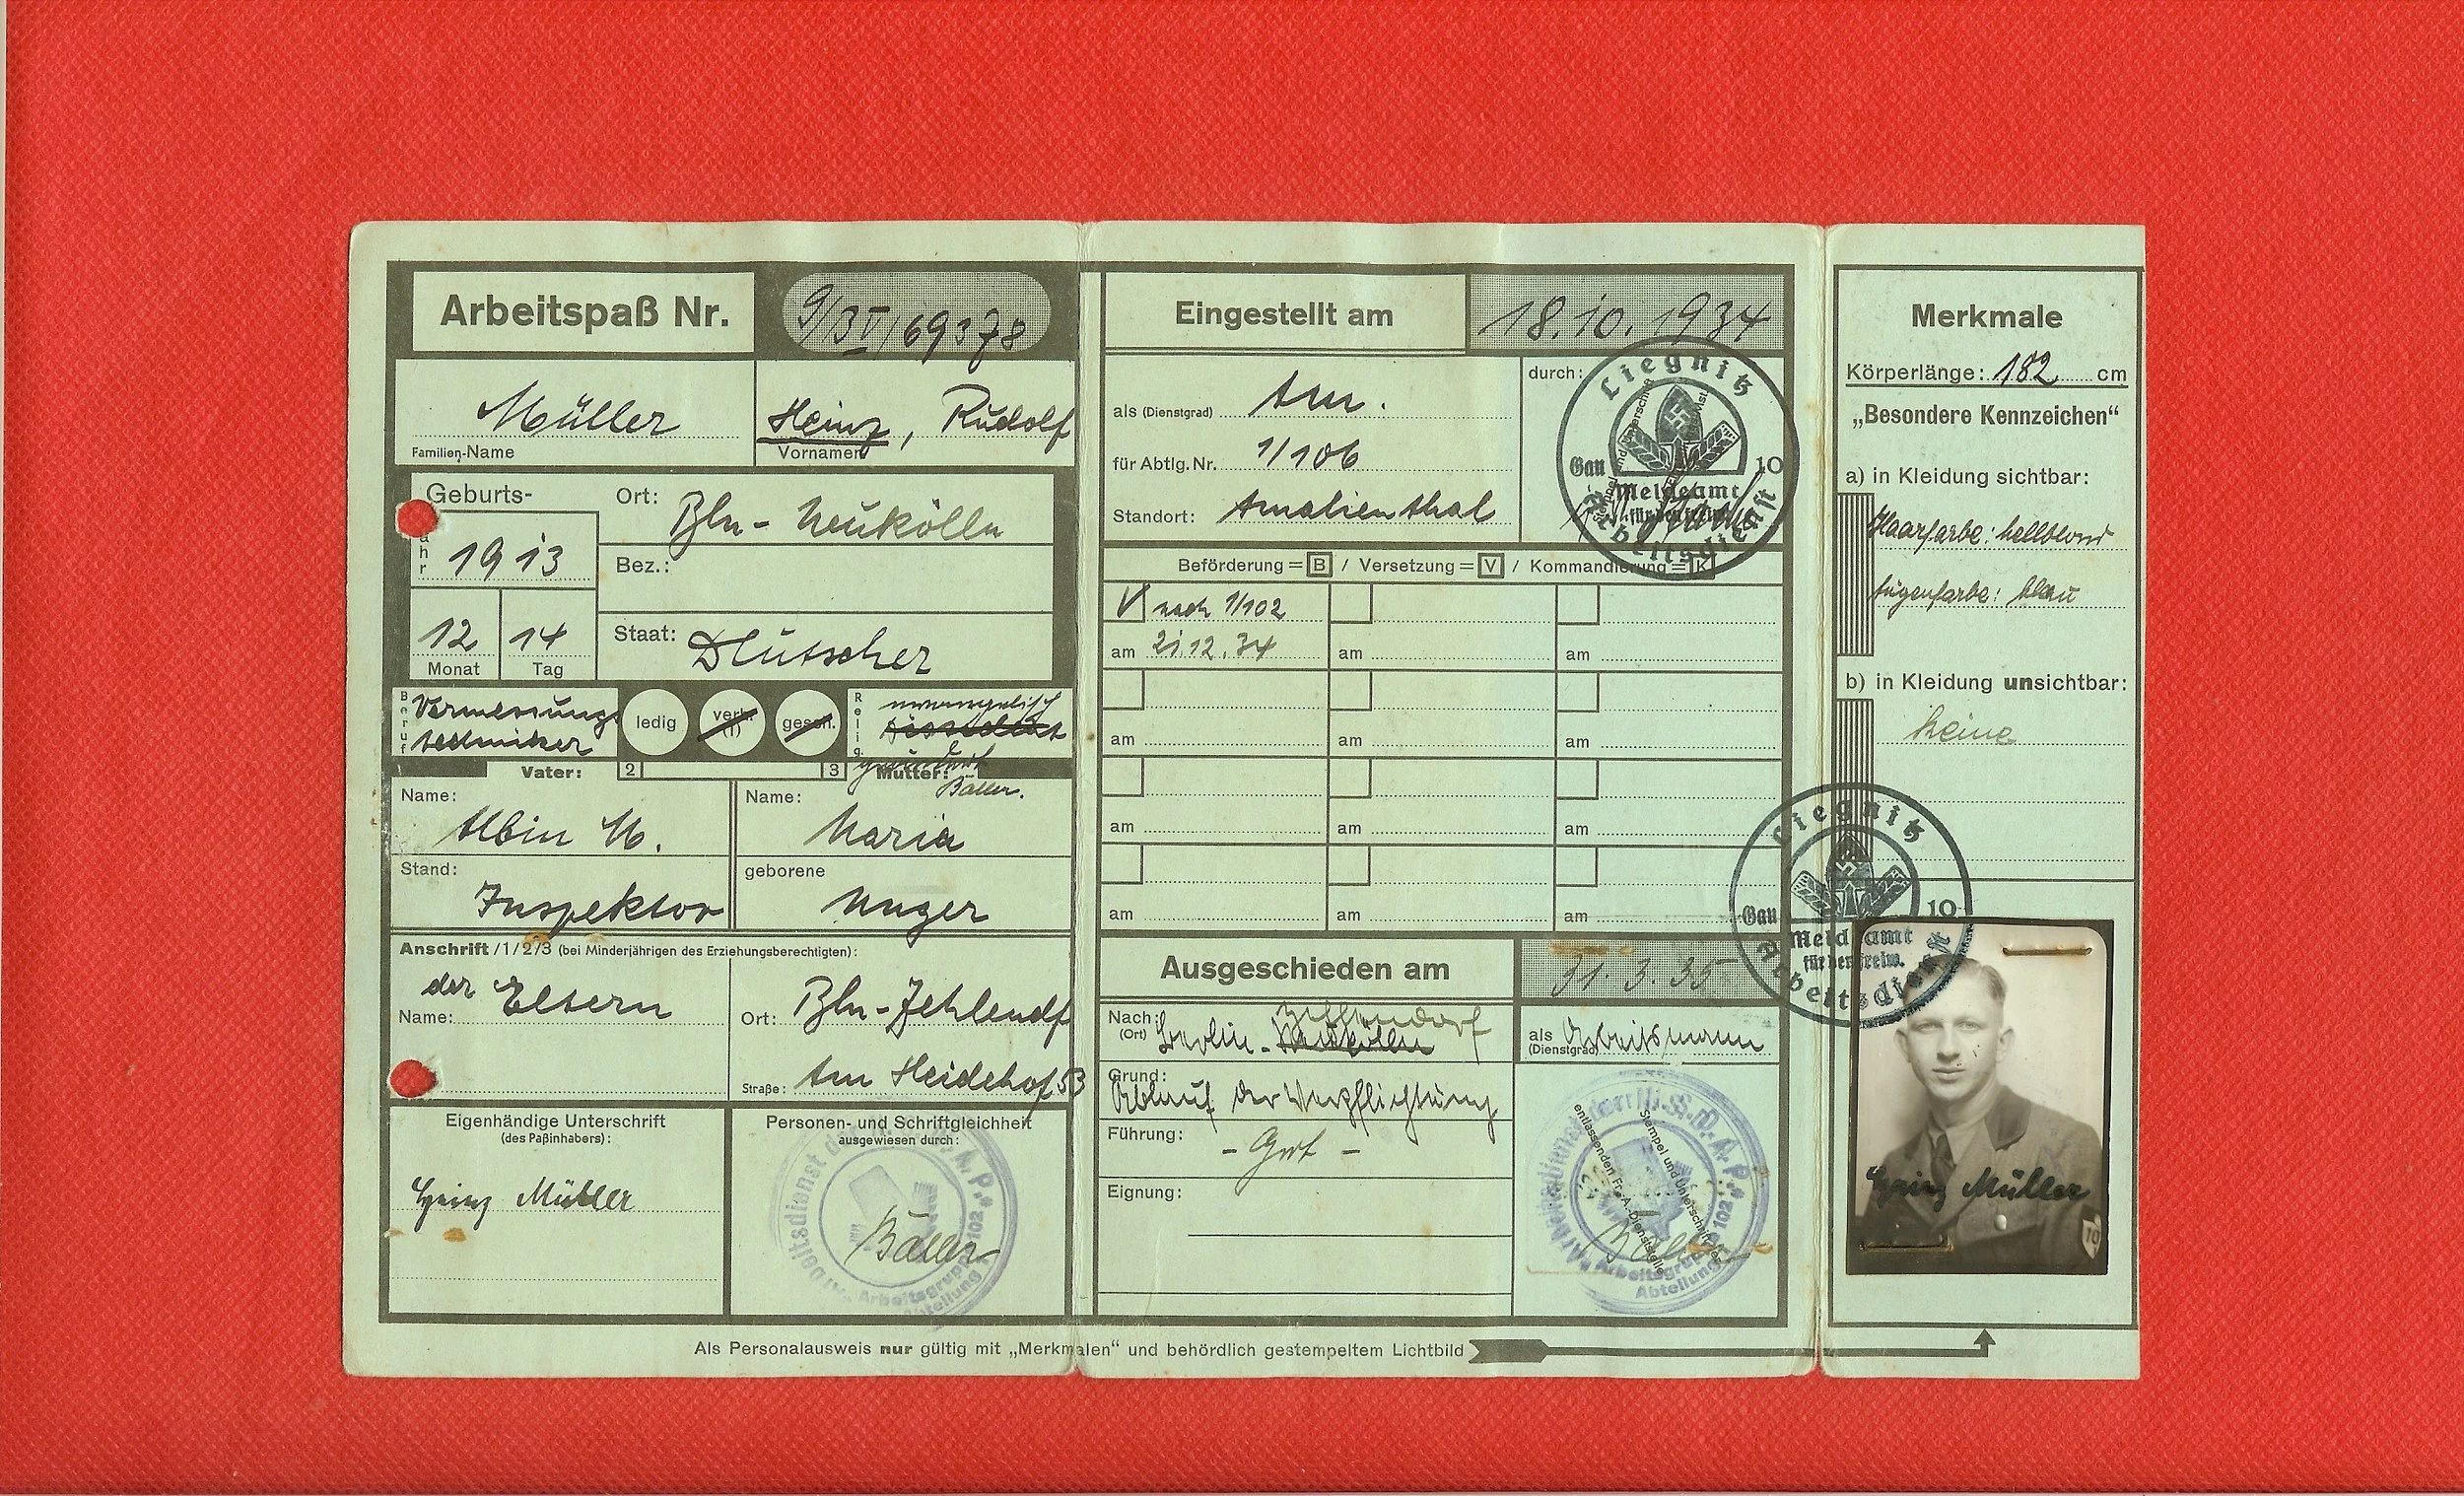 Arbeitspaß Nr. 9/3V/69378
Müller
Familien-Name
Heinz, Rudolf
Vornamen
Geburts-
Jahr 1913
12 14
Monat Tag
Ort: Bln - Neukölln
Bez.:
Staat: Deutscher
Beruf
Vermessungs
techniker
ledig
verh.
(1)
gesch.
Relig.
evangelisch
Dissident
geändert
Baller.
Vater:
2 3
Mutter:
Name: Albin M.
Stand: Inspektor
Name: Maria
geborene Unger
Anschrift /1/2/3 (bei Minderjährigen des Erziehungsberechtigten):
der Eltern
Name:
Ort: Bln-Zehlendf
Straße: Am Heidehof 53
Eigenhändige Unterschrift
(des Paßinhabers):
Heinz Müller
Personen- und Schriftgleichheit
ausgewiesen durch:
Arbeitsdienst der N.S.D.A.P.
Arbeitsgruppe 102
Abteilung 1
Baller
Eingestellt am 18.10.1934
als (Dienstgrad) Am.
für Abtlg. Nr. 1/106
Standort: Amalienthal
durch:
Liegnitz
Gau 10
Meldeamt
für den freiw.
Arbeitsdienst
Beförderung = B / Versetzung = V / Kommandierung = K
V nach 1/102
am 21.12.34
am
am
am
am
am
am
am
am
am
am
am
Ausgeschieden am 31.3.35
Nach: (Ort) Berlin - Neukölln
Zehlendorf
als (Dienstgrad) Arbeitsmann
Grund: Ablauf der Verpflichtung
Führung: - Gut -
Eignung:
Stempel und Unterschrift der
entlassenden Fr. A.-Dienststelle
Arbeitsdienst der N.S.D.A.P.
Arbeitsgruppe 102
Abteilung 1
Baller
Merkmale
Körperlänge: 182 cm
„Besondere Kennzeichen“
a) in Kleidung sichtbar:
Haarfarbe: hellblond
Augenfarbe: blau
b) in Kleidung unsichtbar:
keine
Liegnitz
Gau 10
Meldeamt
für den freiw.
Arbeitsdienst
Heinz Müller
10
Als Personalausweis nur gültig mit „Merkmalen“ und behördlich gestempeltem Lichtbild